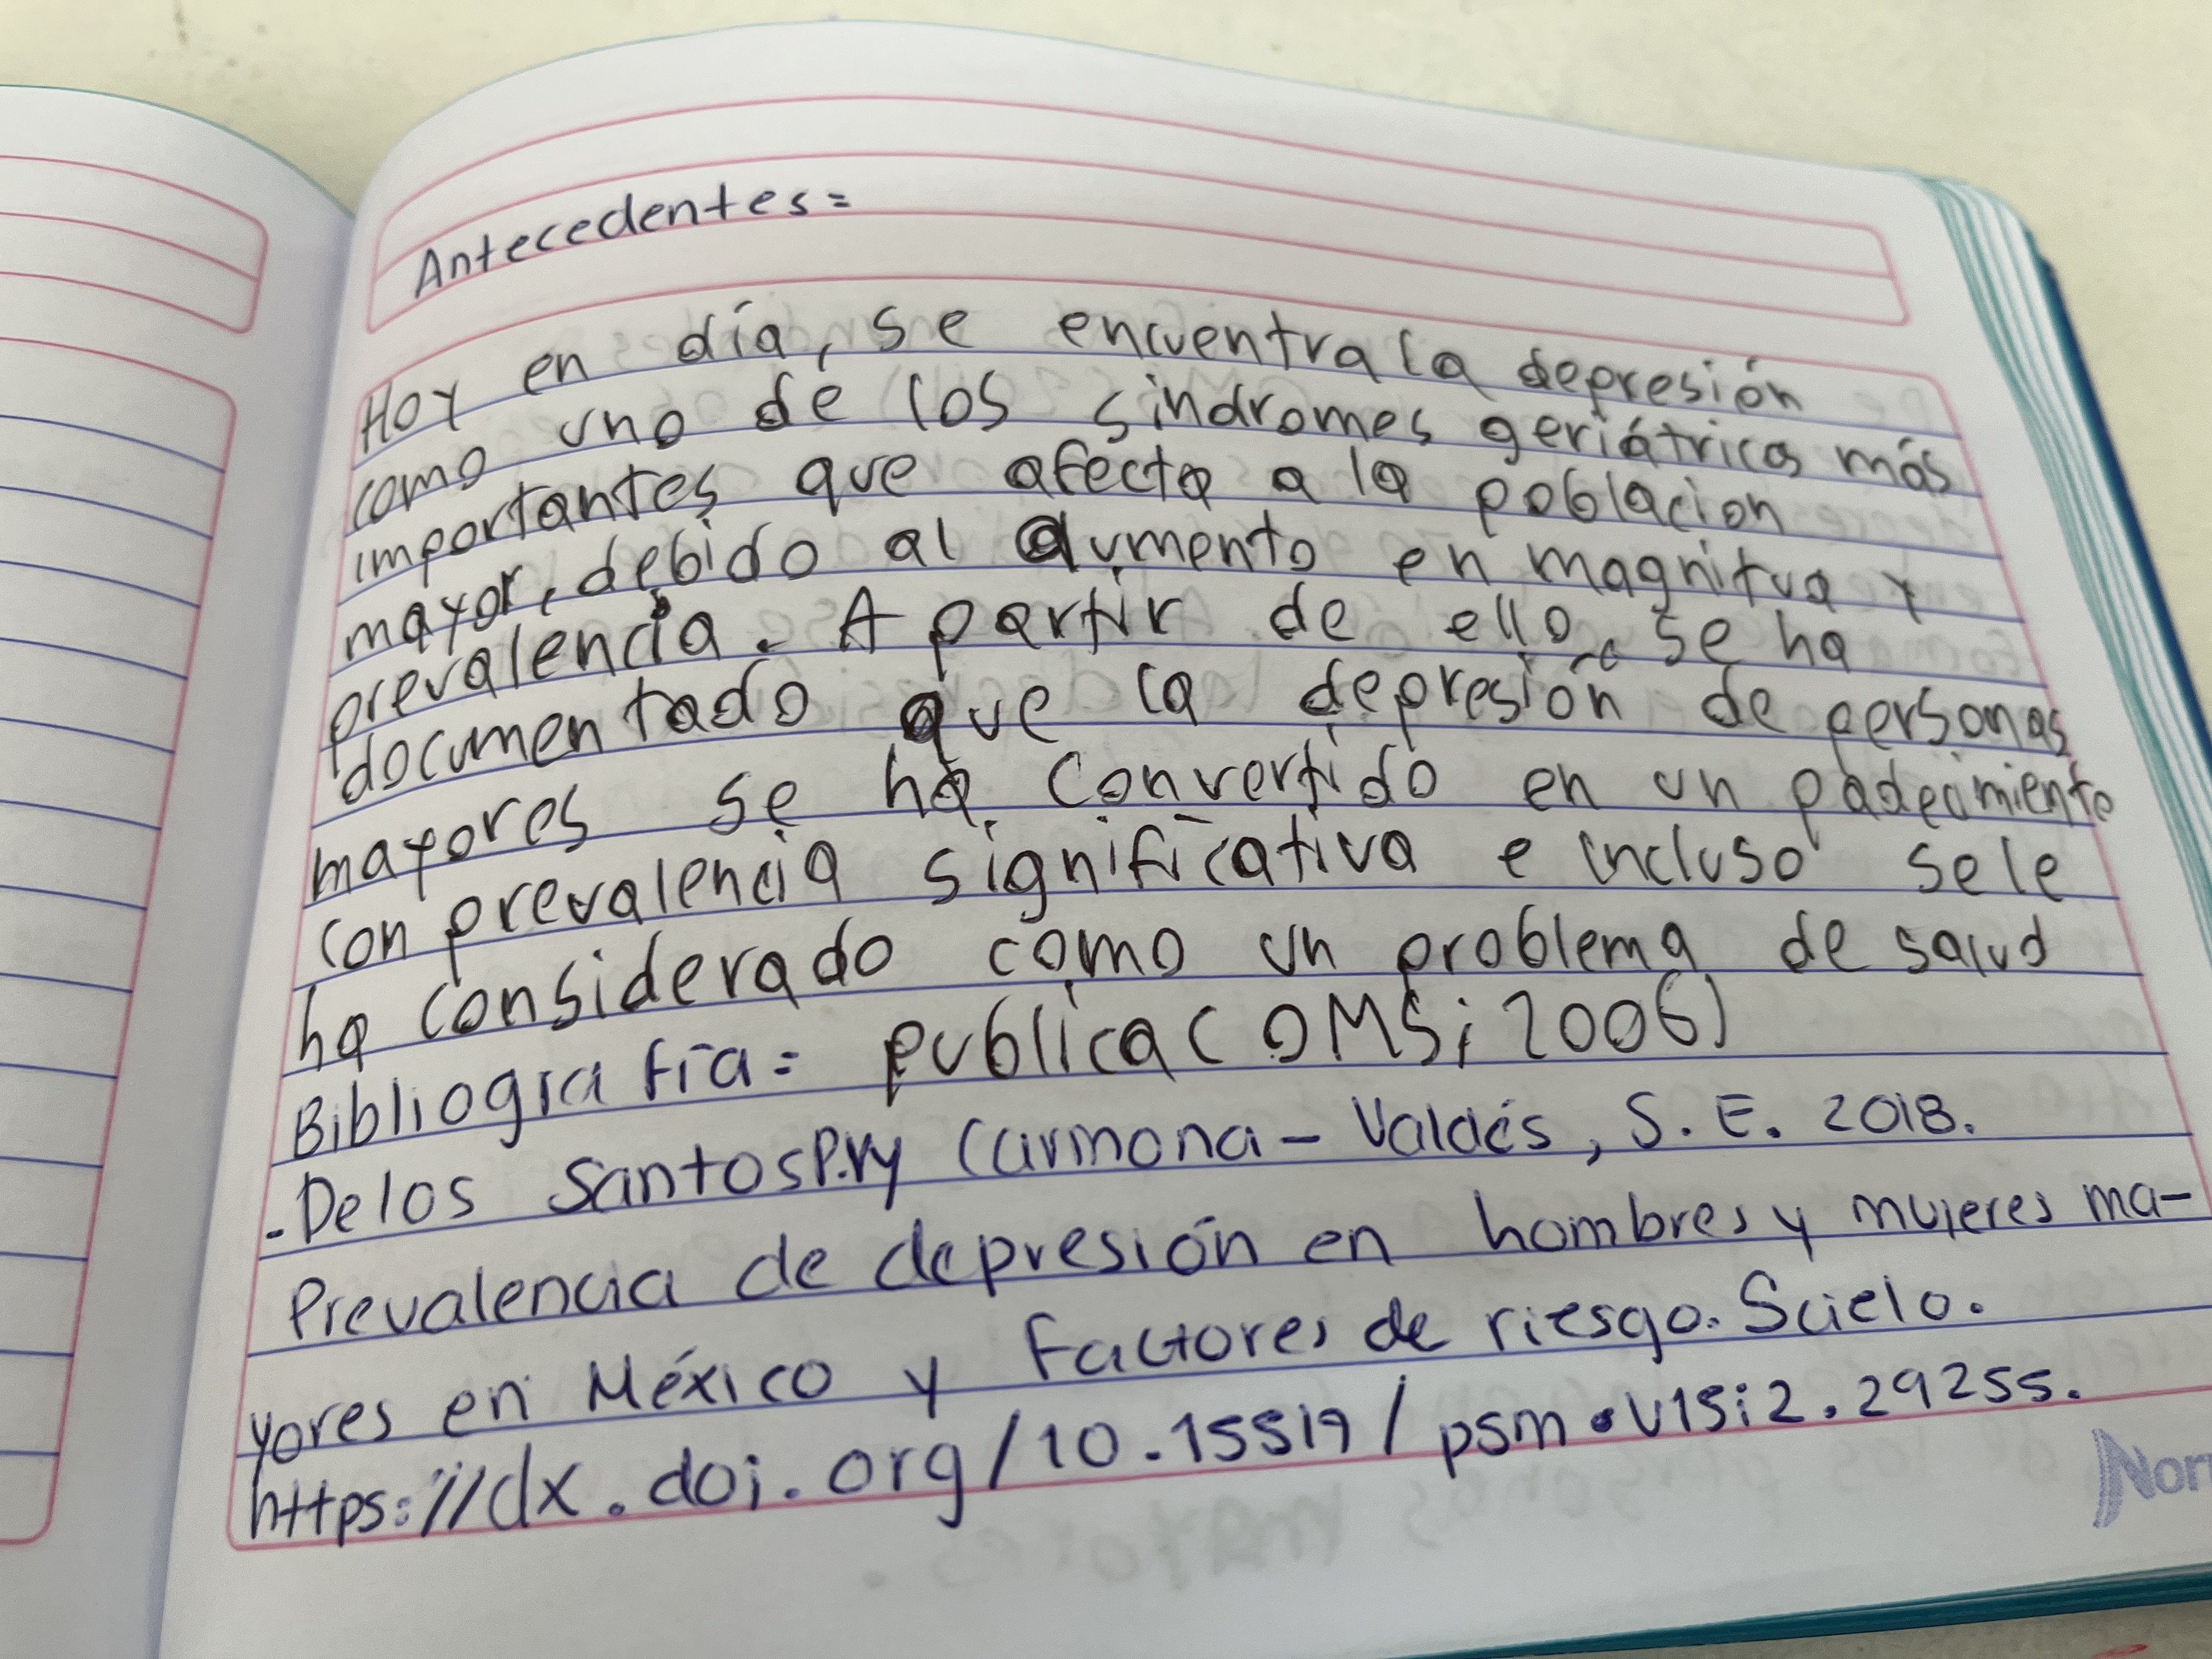 Antecedentes=
Hoy en día, se encuentra la depresión
como uno de los síndromes geriátricos más
importantes que afecta a la poblacion
mayor, debido al aumento en magnitud y
prevalencia. A partir de ello, se ha
documentado que la depresión de personas
mayores se ha convertido en un padecimiento
con prevalencia significativa e incluso se le
ha considerado como un problema de salud
publica (OMS; 2006)
Bibliografía=
- De los Santos P.V y Carmona - Valdés, S. E. 2018.
Prevalencia de depresión en hombres y mujeres ma-
yores en México y Factores de riesgo. Scielo.
https://dx.doi.org/10.15517/psm.v15i2.29255.
Nor